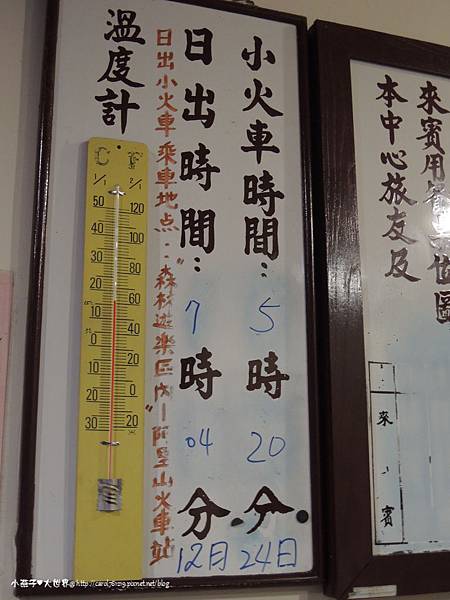 小火車時間：5時20分
日出時間：7時04分
12月24日
日出小火車 乘車地点："森林遊楽區內"—阿里山火車站
溫度計
C F
1/1 2/1
50 120
40 100
30 80
20 60
10 40
0
10 20
20 0
30 20
來賓用餐座位圖
本中心旅友及
來賓
小燕子♥大世界@http://carol76129.pixnet.net/blog